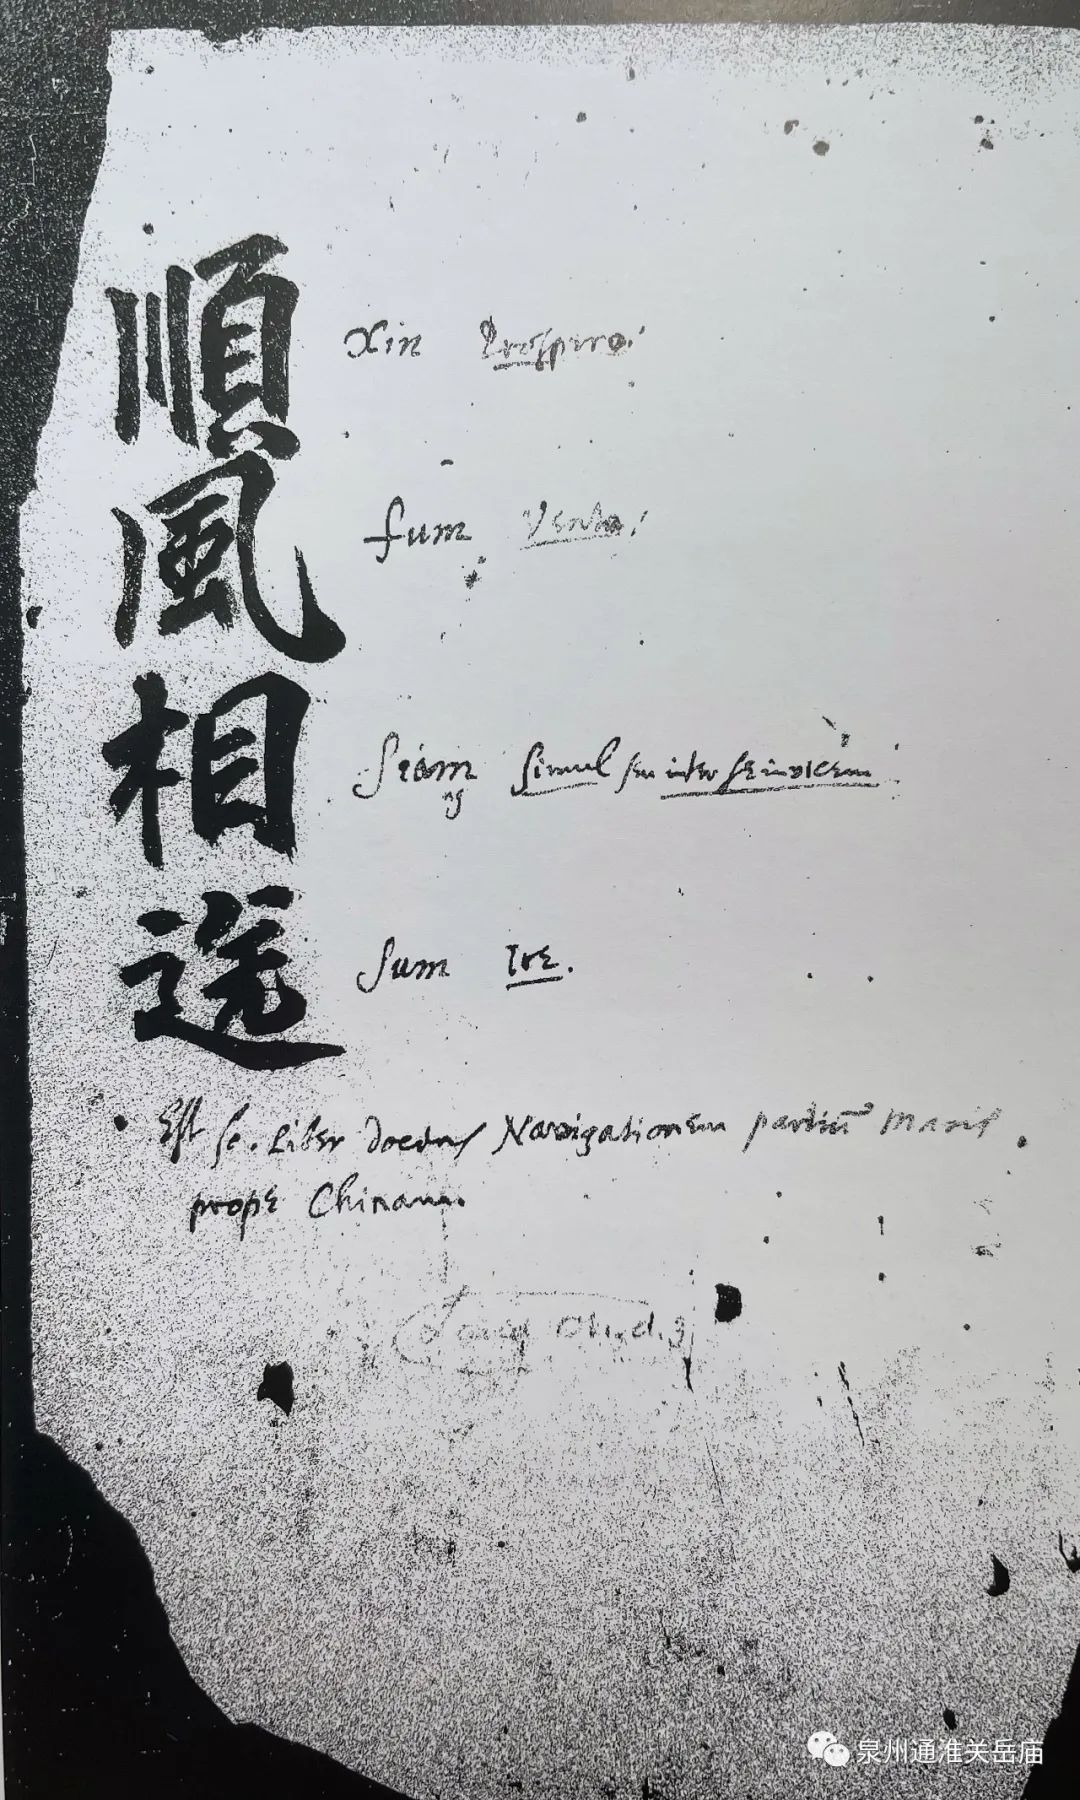 順風相送
Xin Prospero:
fum Vento:
Siam simul seu inter se invicem
ng
Sum Ire.
Est sc. Liber docens Navigationem partiū Maris
prope Chinam.
泉州通淮关岳庙